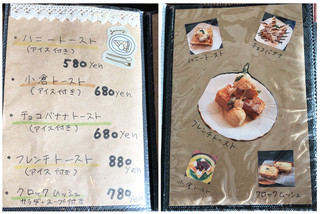 ・ハニートースト
(アイス付き)
580yen
・小倉トースト
(アイス付き) 680yen
・チョコバナナトースト
(アイス付き) 680yen
・フレンチトースト 880
(アイス付き) yen
・クロックムッシュ 780yen
サラダ・スープ付き
ハニートースト
チョコバナナ
フレンチトースト
小倉トースト
クロックムッシュ